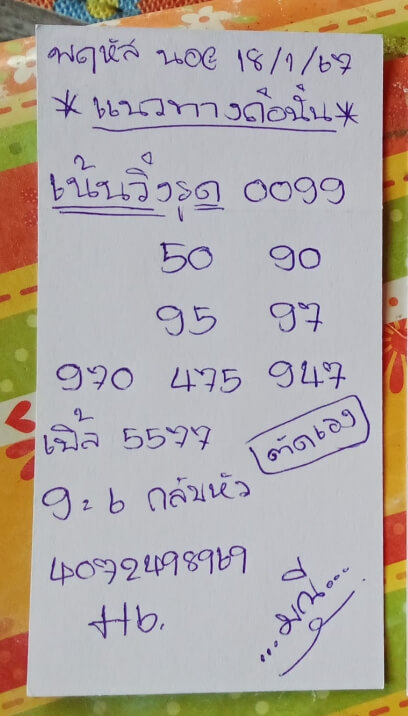 พฤหัส นอย 18/1/67
*แนวทางดือนั้น*
เน้นวิ่งรูด 0099
50 90
95 97
970 475 947
เบิ้ล 5577
ตัดเอง
9=6 กลับหัว
4072498969
++6.
...มณี...